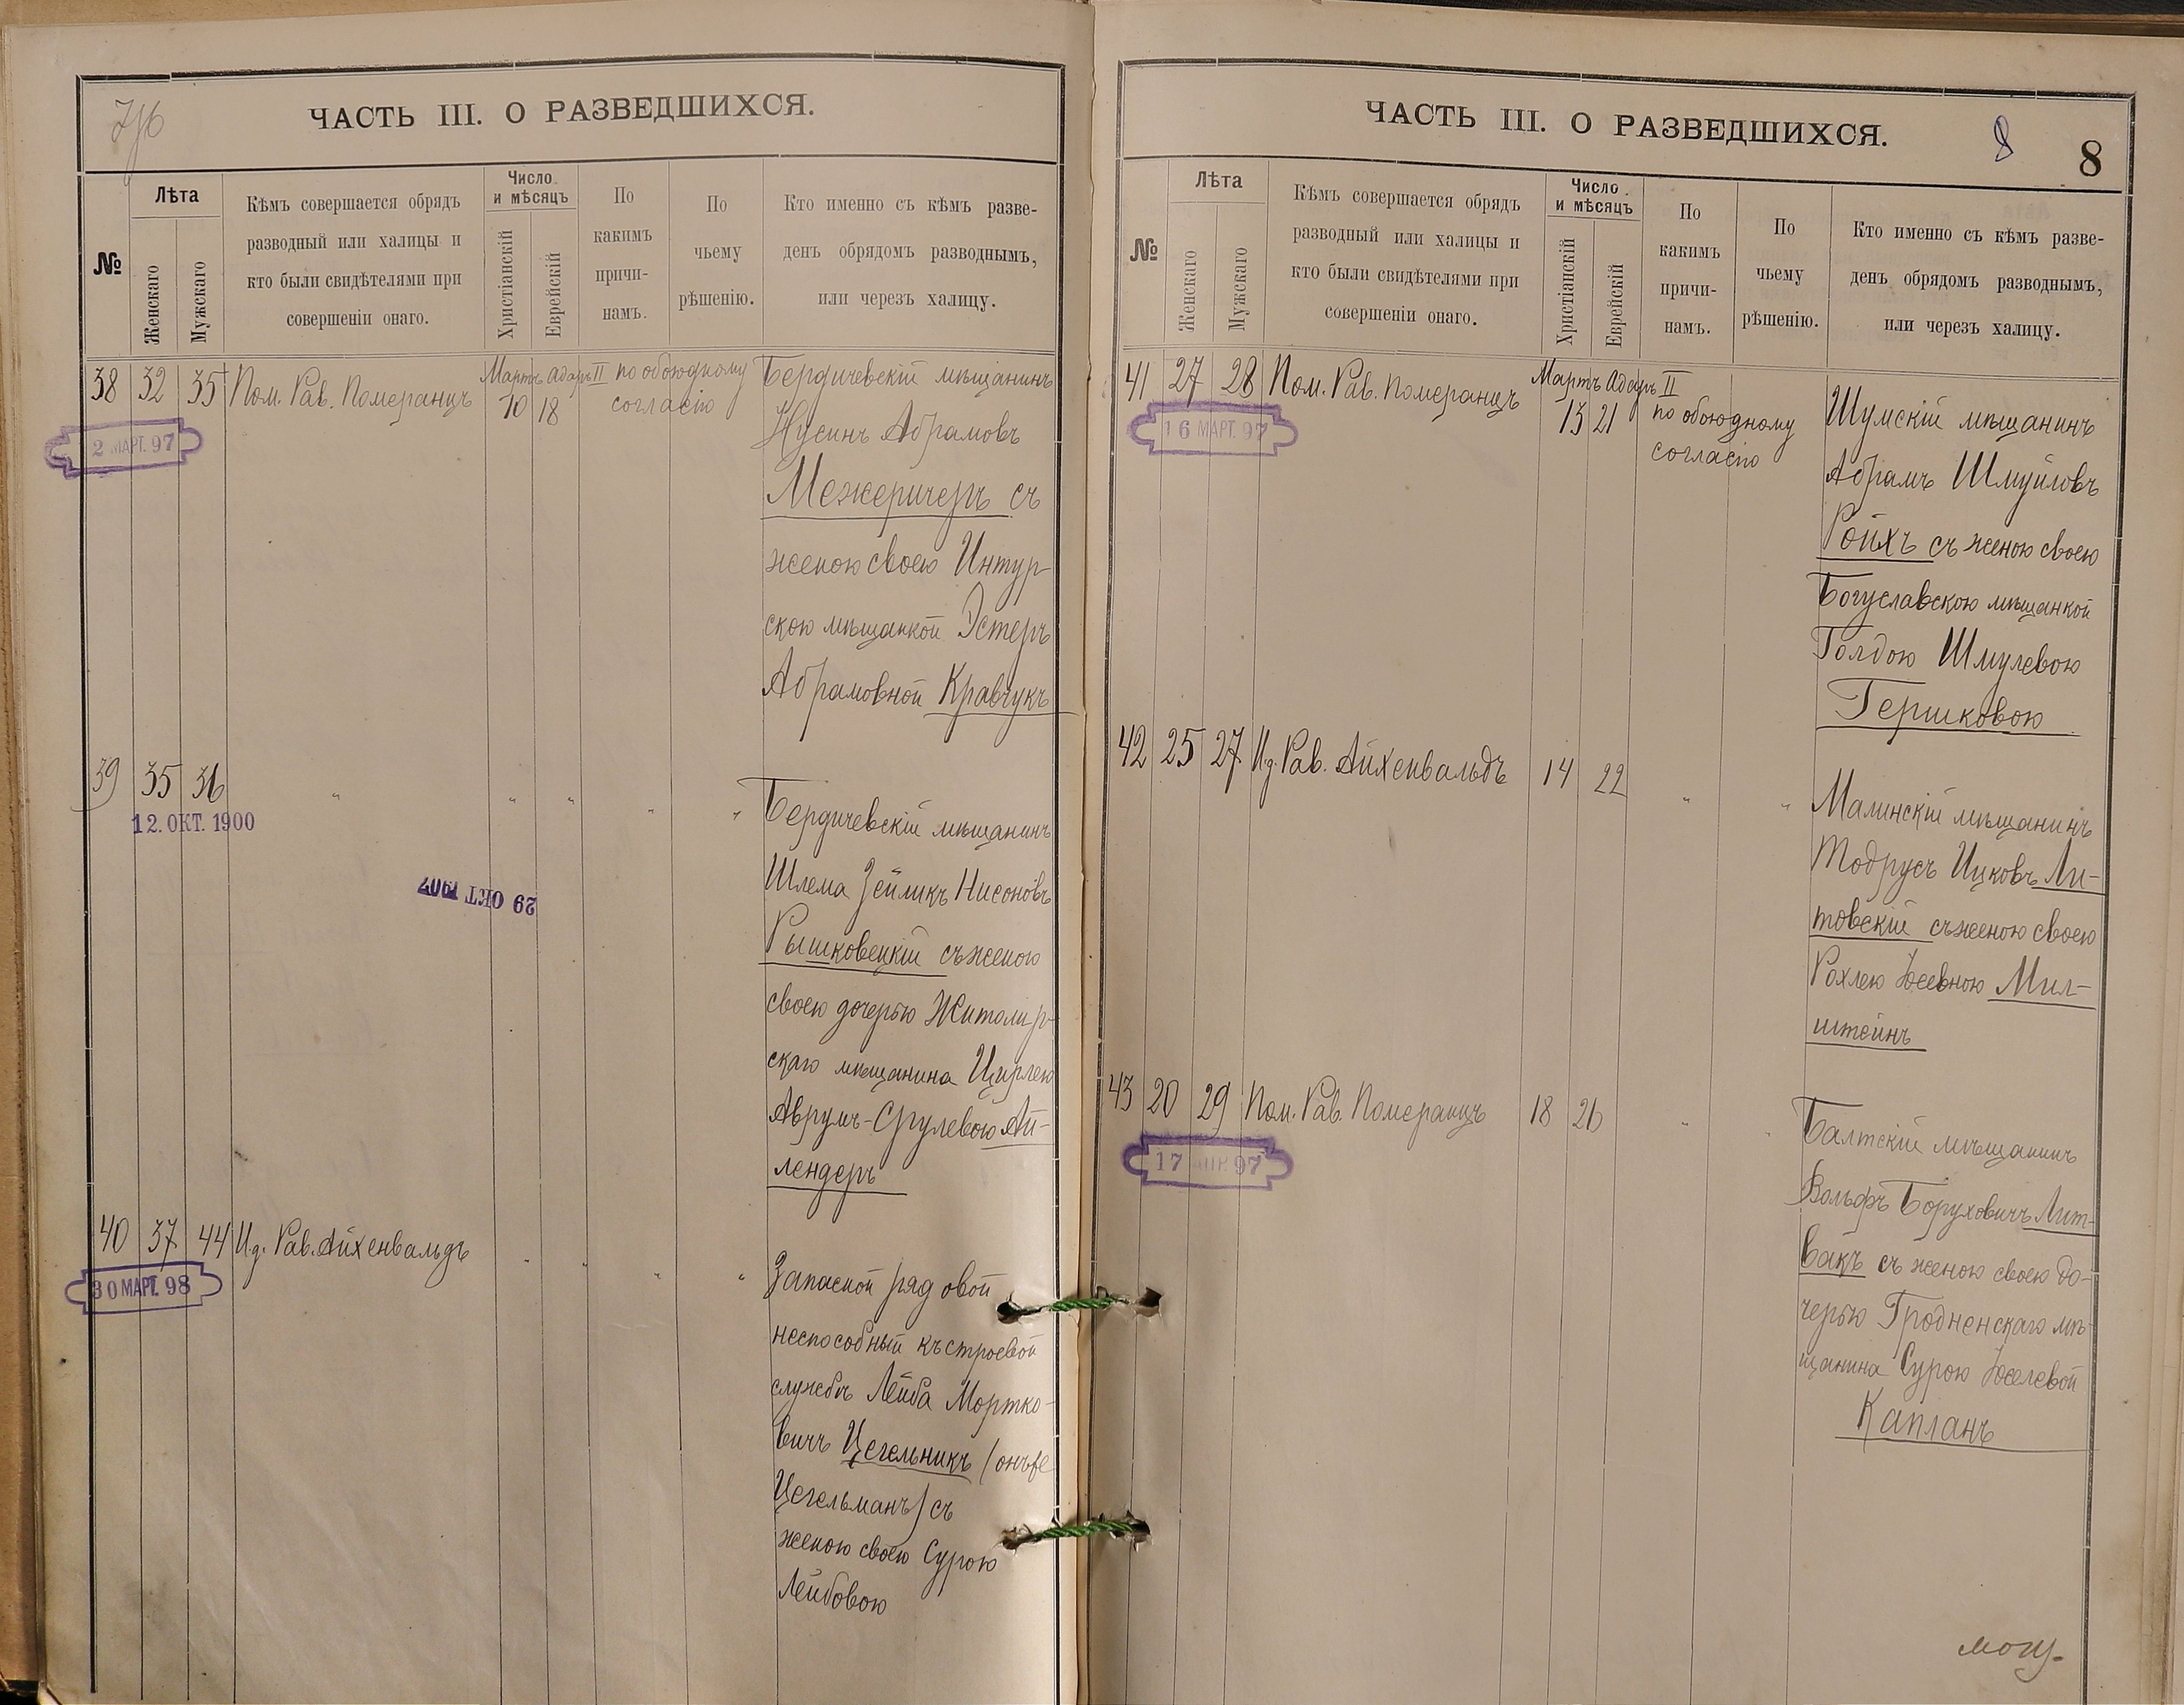 ЧАСТЬ III. О РАЗВЕДШИХСЯ.
№
Лѣта
Женскаго
Мужскаго
Кѣмъ совершается обрядъ
разводный или халицы и
кто были свидѣтелями при
совершеніи онаго.
Число
и мѣсяцъ
Христіанскій
Еврейскій
По
какимъ
причи-
намъ.
По
чьему
рѣшенію.
Кто именно съ кѣмъ разве-
денъ обрядомъ разводнымъ,
или черезъ халицу.
38 32 35 Пом. Рав. Померанцъ
Мартъ Адаръ II
10 18
по обоюдному
согласію
2 МАРТ. 97
Бердичевскій мѣщанинъ
Нусинъ Абрамовъ
Межеричеръ съ
женою своею Интур-
скою мѣщанкой Эстеръ
Абрамовной Кравчукъ
39 35 36 " " " " "
12. ОКТ. 1900
29 ОКТ 1907
Бердичевскій мѣщанинъ
Шлема Зейликъ Нисоновъ
Рышковецкій съ женою
своею дочерью Житомир-
скаго мѣщанина Цирлею
Аврумъ-Срулевою Ай-
лендеръ
40 37 44 И.д. Рав. Айхенвальдъ " " " "
30 МАРТ. 98
Запасной рядовой
неспособный къ строевой
службѣ Лейба Мортко-
вичъ Цегельникъ (онъ же
Цегельманъ) съ
женою своею Сурою
Лейбовою
ЧАСТЬ III. О РАЗВЕДШИХСЯ.
8
8
№
Лѣта
Женскаго
Мужскаго
Кѣмъ совершается обрядъ
разводный или халицы и
кто были свидѣтелями при
совершеніи онаго.
Число
и мѣсяцъ
Христіанскій
Еврейскій
По
какимъ
причи-
намъ.
По
чьему
рѣшенію.
Кто именно съ кѣмъ разве-
денъ обрядомъ разводнымъ,
или черезъ халицу.
41 27 28 Пом. Рав. Померанцъ
Мартъ Адаръ II
13 21
по обоюдному
согласію
16 МАРТ. 97
Шумскій мѣщанинъ
Абрамъ Шмуйловъ
Ройхъ съ женою своею
Богуславскою мѣщанкой
Голдою Шмулевою
Гершковою
42 25 27 И.д. Рав. Айхенвальдъ 14 22 " "
Малинскій мѣщанинъ
Тодрусъ Ицковъ Ли-
товскій съ женою своею
Рохлею Іосевною Мил-
штейнъ
43 20 29 Пом. Рав. Померанцъ 18 26 " "
17 АПР. 97
Балтскій мѣщанинъ
Вольфъ Боруховичъ Лит-
вакъ съ женою своею до-
черью Гродненскаго мѣ-
щанина Сурою Іоселевой
Капланъ
могу-